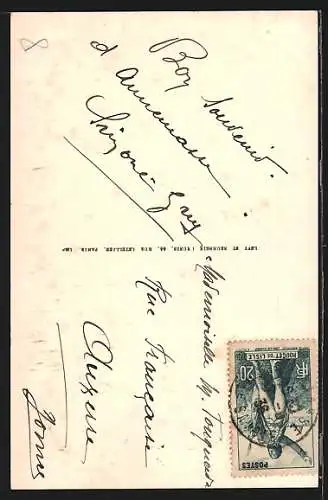 8
Bon Souvenir
d'Annemasse
Simone
LEVY ET NEURDEIN RÉUNIS, 44, RUE LETELLIER, PARIS, IMP
Mademoiselle M.
Rue Française
Auxerre
Yonne
RF
ROUGET DE LISLE
20c
POSTES